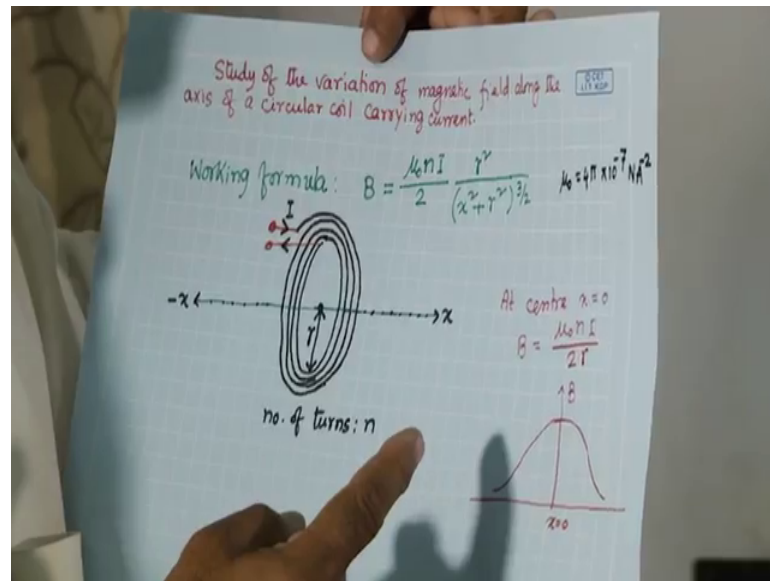 Study of the variation of magnetic field along the
axis of a circular coil carrying current.
© CET
I.I.T. KGP
Working formula: B = μ₀nI/2 r²/(x²+r²)^3/2
μ₀ = 4π×10⁻⁷ NA⁻²
I
-x
x
r
no. of turns: n
At centre x=0
B = μ₀nI/2r
B
x=0